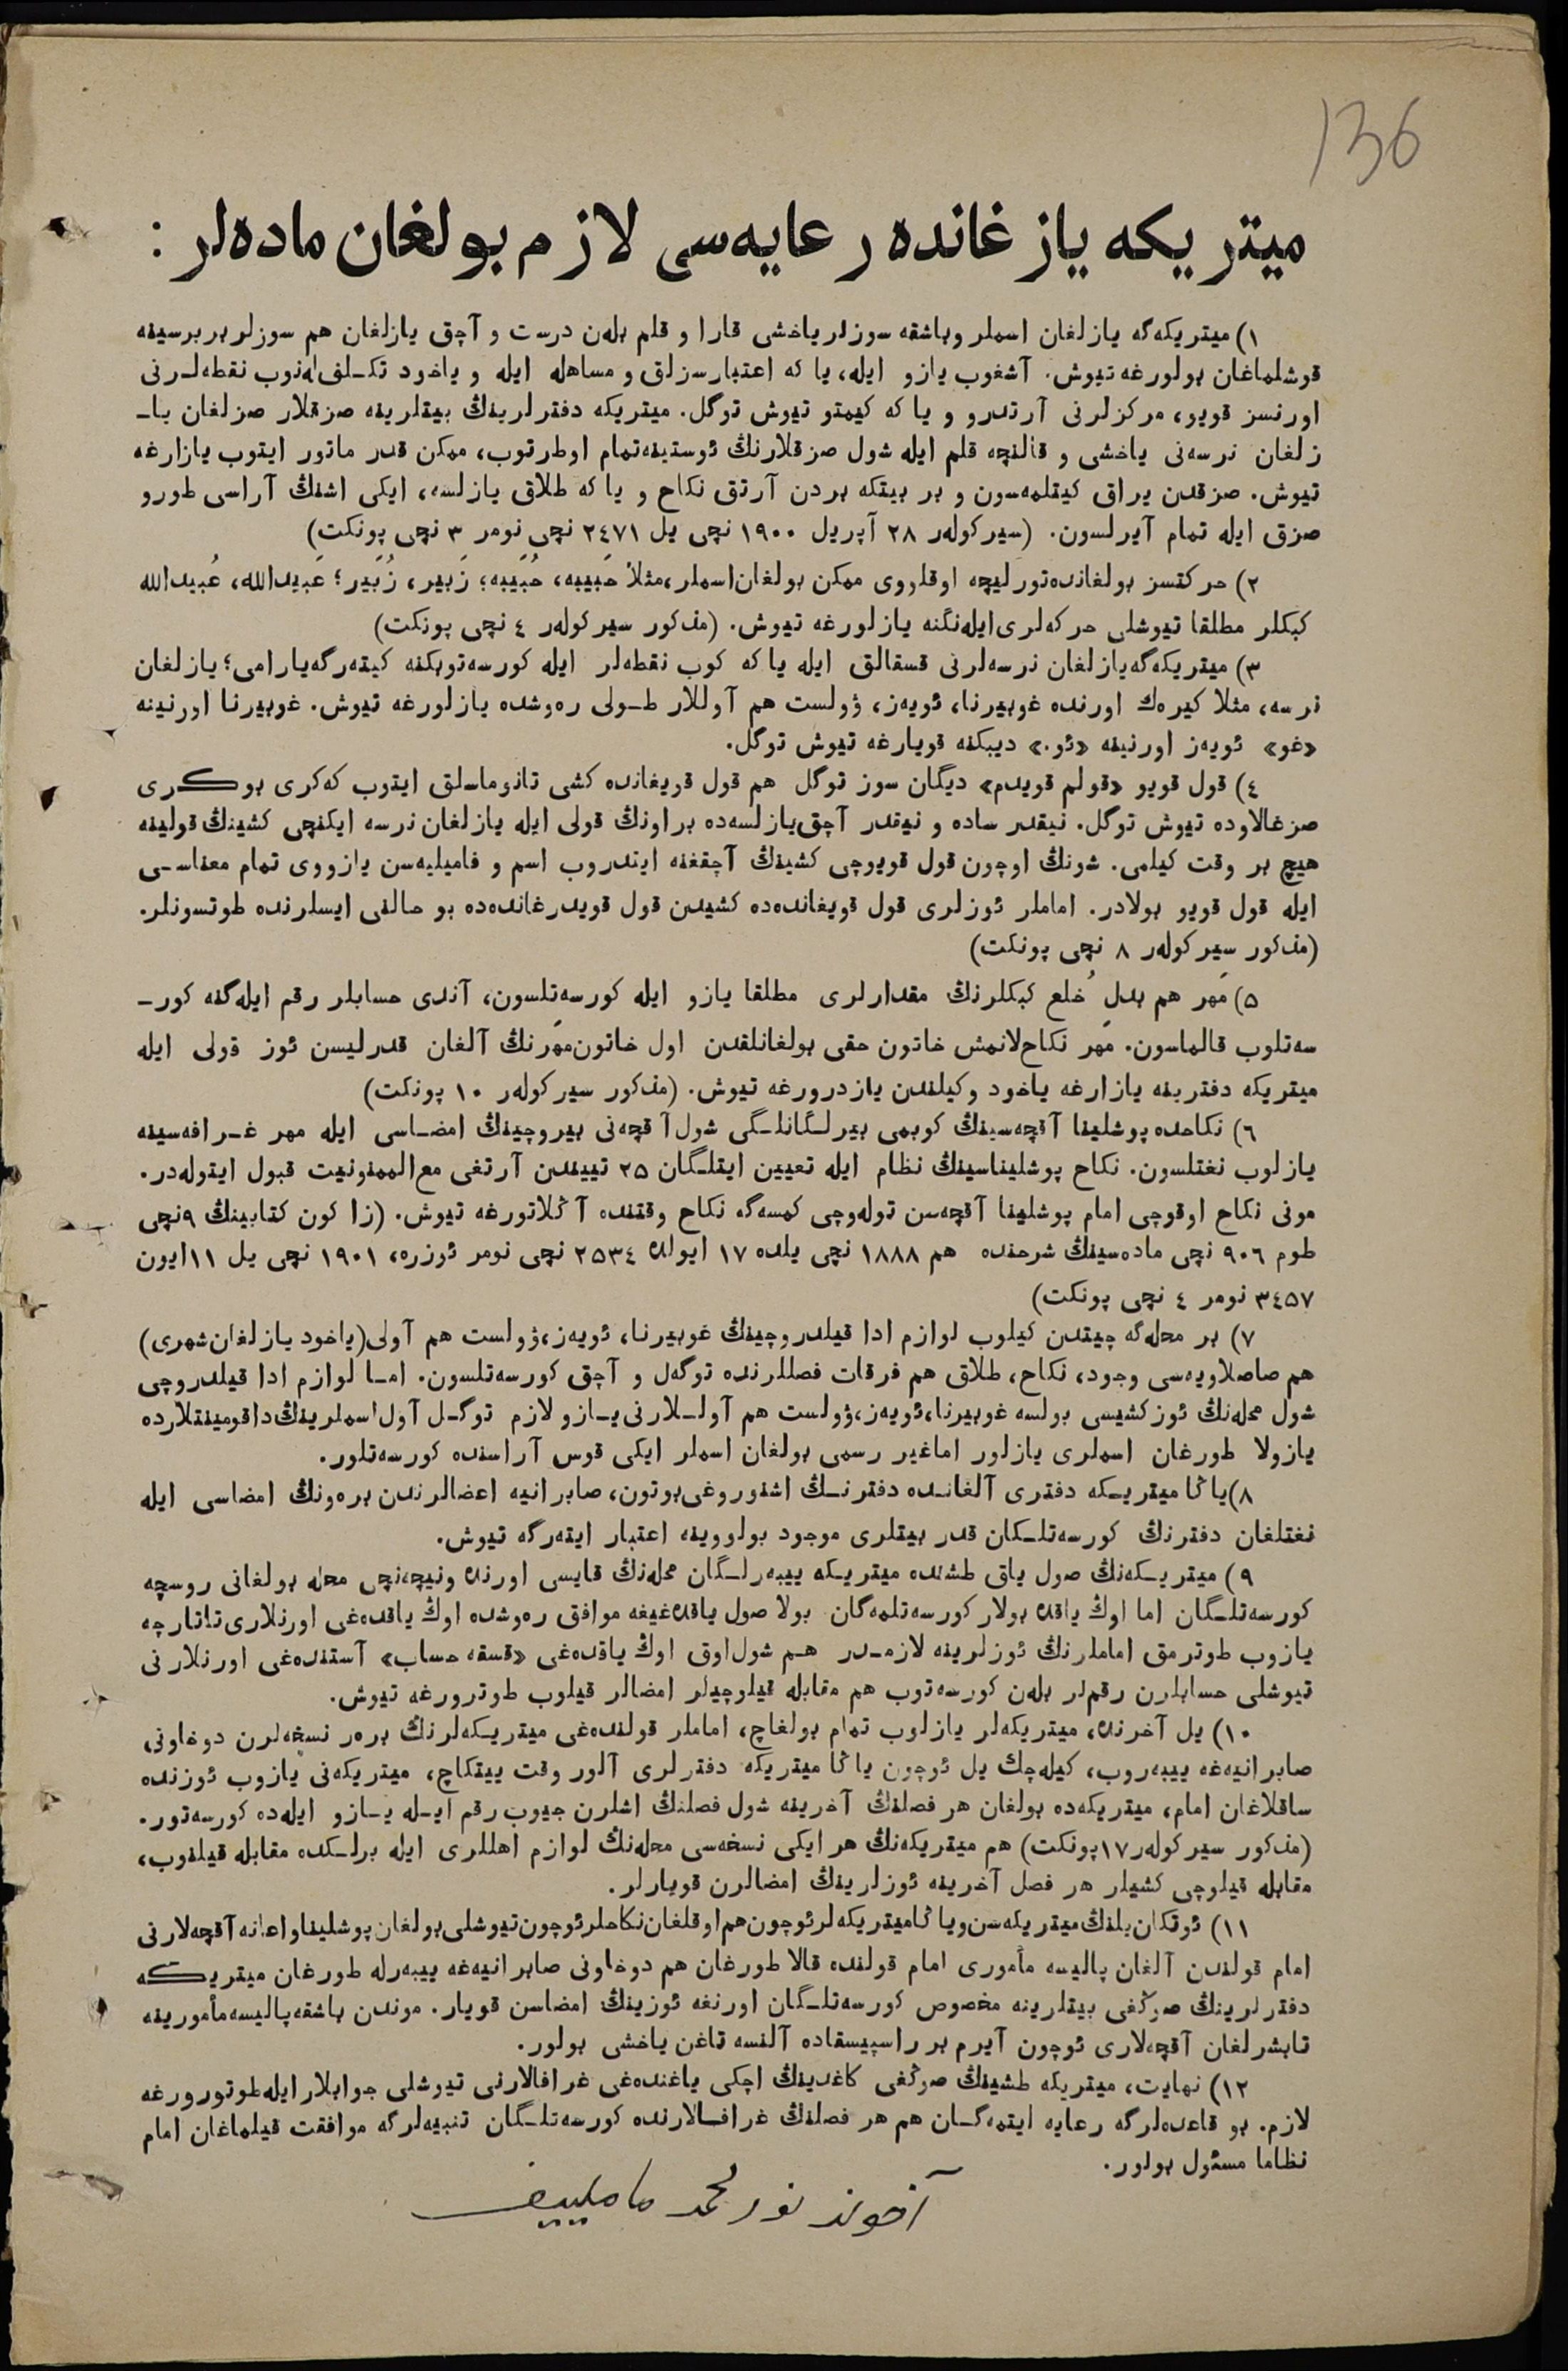 136
میتریکه یازغانده رعایه‌سی لازم بولغان ماده‌لر :
۱) میتریکه‌گه یازلغان اسملر وباشقه سوزلر یاخشی قارا و قلم بله‌ن درست و آچق یازلغان هم سوزلر بربرسینه
قوشلماغان بولورغه تیوش. آشغوب یازو ایله، یا که اعتبارسزلق و مساهله ایله و یاخود تکـلفی له‌نوب نقطه‌لـرنی
اورنسز قویو، مرکزلرنی آرتدرو و یا که کیمتو تیوش توگل. میتریکه دفترلرینڭ بیتلرینه صزقلار صزلغان یاـ
زلغان نرسه‌نی یاخشی و قالنچه قلم ایله شول صزقلارنڭ ئوستینه‌تمام اوطرتوب، ممکن قدر ماتور ایتوب یازارغه
تیوش. صزقدن یراق کیتلمه‌سون و بر بیتکه بردن آرتق نکاح و یا که طلاق یازلسه، ایکی اشنڭ آراسی طورو
صزق ایله تمام آیرلسون. (سیرکوله‌ر ۲۸ آپریل ۱۹۰۰ نچی یل ۲٤۷۱ نچی نومر ۳ نچی پونکت)
۲) حرکتسز بولغانده‌تورلیچه اوقلووی ممکن بولغان‌اسملر،مثلاً حَبیبه، حُبَیبه؛ زَبیر، زُبَیر؛ عَبیدالله، عُبیدالله
کبکلر مطلقا تیوشلی حرکه‌لری‌ایله‌نگنه یازلورغه تیوش. (مذکور سیرکوله‌ر ٤ نچی پونکت)
۳) میتریکه‌گه‌یازلغان نرسه‌لرنی قسقالق ایله یا‌که کوب نقطه‌لر ایله کورسه‌توبکنه کیته‌رگه‌یارامی؛ یازلغان
نرسه، مثلا کیره‌ك اورنده غوبیرنا، ئویه‌ز، ۋولست هم آوللار طـولی ره‌وشده یازلورغه تیوش. غوبیرنا اورنینه
«غو» ئویه‌ز اورنینه «ئو.» دیبکنه قویارغه تیوش توگل.
٤) قول قویو «قولم قویدم» دیگان سوز توگل هم قول قویغانده کشی تانوماسلق ایتوب که‌کری بوکـری
صزغالاوده تیوش توگل. نیقدر ساده و نیقدر آچق‌یازلسه‌ده براونڭ قولی ایله یازلغان نرسه ایکنچی کشینڭ قولینه
هیچ بر وقت کیلمی. شونڭ اوچون قول قویوچی کشینڭ آچقغنه ایتدروب اسم و فامیلیه‌سن یازووی تمام معناسـی
ایله قول قویو بولادر. اماملر ئوزلری قول قویغانده‌ده کشیدن قول قویدرغانده‌ده بو حالنی ایسلرنده طوتسونلر.
(مذکور سیرکوله‌ر ۸ نچی پونکت)
۵) مَهر هم بدلِ خُلع کبکلرنڭ مقدارلری مطلقا یازو ایله کورسه‌تلسون، آندی حسابلر رقم ایله‌گنه کورـ
سه‌تلوب قالماسون. مَهر نکاح‌لانمش خاتون حقی بولغانلقدن اول خاتون‌مهرنڭ آلغان قدرلیسن ئوز قولی ایله
میتریکه دفترینه یازارغه یاخود وکیلندن یازدرورغه تیوش. (مذکور سیرکوله‌ر ۱۰ پونکت)
٦) نکاحده پوشلینا آقچه‌سینڭ کوبمی بیرلـگانلـگی شول آقچه‌نی بیروچینڭ امضـاسی ایله مهر غـرافه‌سینه
یازلوب نغتلسون. نکاح پوشلیناسینڭ نظام ایله تعیین ایتلـگان ۲۵ تییندن آرتغی مع‌الممنونیت قبول ایتوله‌در.
مونی نکاح اوقوچی امام پوشلینا آقچه‌سن توله‌وچی کمسه‌گه نکاح وقتنده آڭلاتورغه تیوش. (زاکون کتابینڭ ۹نچی
طوم ۹۰٦ نچی ماده‌سینڭ شرحنده هم ۱۸۸۸ نچی یلده ۱۷ ایولده ۲۵۳٤ نچی نومر ئوزره، ۱۹۰۱ نچی یل ۱۱ایون
۳٤۵۷ نومر ٤ نچی پونکت)
۷) بر محله‌گه چیتدن کیلوب لوازم ادا قیلدروچینڭ غوبیرنا، ئویه‌ز،ۋولست هم آولی(یاخود یازلغان‌شهری)
هم صاصلاویه‌سی وجود، نکاح، طلاق هم فرقات فصللرنده توگه‌ل و آچق کورسه‌تلسون. امـا لوازم ادا قیلدروچی
شول محله‌نڭ ئوز کشیسی بولسه غوبیرنا،ئویه‌ز،ۋولست هم آولـلارنی یـازو لازم توگـل آول اسملرینڭ‌داقومینتلارده
یازولا طورغان اسملری یازلور اماغیر رسمی بولغان اسملر ایکی قوس آراسنده کورسه‌تلور.
۸)یاڭا میتریـکه دفتری آلغانـده دفترنـڭ اشنوروغی‌بوتون، صابرانیه اعضالرندن بره‌ونڭ امضاسی ایله
نغتلغان دفترنڭ کورسه‌تلـکان قدر بیتلری موجود بولووینه اعتبار ایته‌رگه تیوش.
۹) میتریـکه‌نڭ صول یاق طشنده میتریـکه ییبه‌رلـگان محله‌نڭ قایسی اورنده ونیچه‌نچی محله بولغانی روسچه
کورسه‌تلـگان اما اوڭ یاقده بولار کورسه‌تلمه‌گان بولا صول یاقده‌غیغه موافق ره‌وشده اوڭ یاقده‌غی اورنلاری‌تاتارچه
یازوب طوترمق اماملرنڭ ئوزلرینه لازمـدر هـم شول‌اوق اوڭ یاقده‌غی «قسقه حساب» آستنده‌غی اورنلارنی
تیوشلی حسابلرن رقملر بله‌ن کورسه‌توب هم مقابله قیلوچیلر امضالر قیلوب طوترورغه تیوش.
۱۰) یل آخرنده، میتریکه‌لر یازلوب تمام بولغاچ، اماملر قولنده‌غی میتریـکه‌لرنڭ بره‌ر نسخه‌لرن دوخاونی
صابرانیه‌غه ییبه‌روب، کیله‌چك یل ئوچون یاڭا میتریکه دفترلری آلور وقت ییتکاچ، میتریکه‌نی یازوب ئوزنده
ساقلاغان امام، میتریکه‌ده بولغان هر فصلنڭ آخرینه شول فصلنڭ اشلرن جیوب رقم ایـله یـازو ایله‌ده کورسه‌تور.
(مذکور سیرکوله‌ر۱۷پونکت) هم میتریکه‌نڭ هر ایکی نسخه‌سی محله‌نڭ لوازم اهللری ایله برلـکده مقابله قیلنوب،
مقابله قیلوچی کشیلر هر فصل آخرینه ئوزلرینڭ امضالرن قویارلر.
۱۱) ئوتکان‌یلنڭ میتریکه‌سن‌ویاڭامیتریکه‌لرئوچون‌هم‌اوقلغان‌نکاحلرئوچون‌تیوشلی‌بولغان‌پوشلیناواعانه آقچه‌لارنی
امام قولندن آلغان پالیسه مأموری امام قولنده قالا طورغان هم دوخاونی صابرانیه‌غه ییبه‌رله طورغان میتریـکه
دفترلرینڭ صوڭغی بیتلرینه مخصوص کورسه‌تلـگان اورنغه ئوزینڭ امضاسن قویار. موندن باشقه پالیسه‌مأمورینه
تابشرلغان آقچه‌لاری ئوچون آیرم بر راسپیسقاده آلنسه تاغن یاخشی بولور.
۱۲) نهایت، میتریکه طشینڭ صوڭغی کاغدینڭ اچکی یاغنده‌غی غرافالارنی تیوشلی جوابلار ایله‌طوتورورغه
لازم. بو قاعده‌لرگه رعایه ایتمه‌گـان هم هر فصلنڭ غرافـالارنده کورسه‌تلـگان تنبیه‌لرگه موافقت قیلماغان امام
نظاما مسئول بولور.
آخوند نورمحمد ماملییف